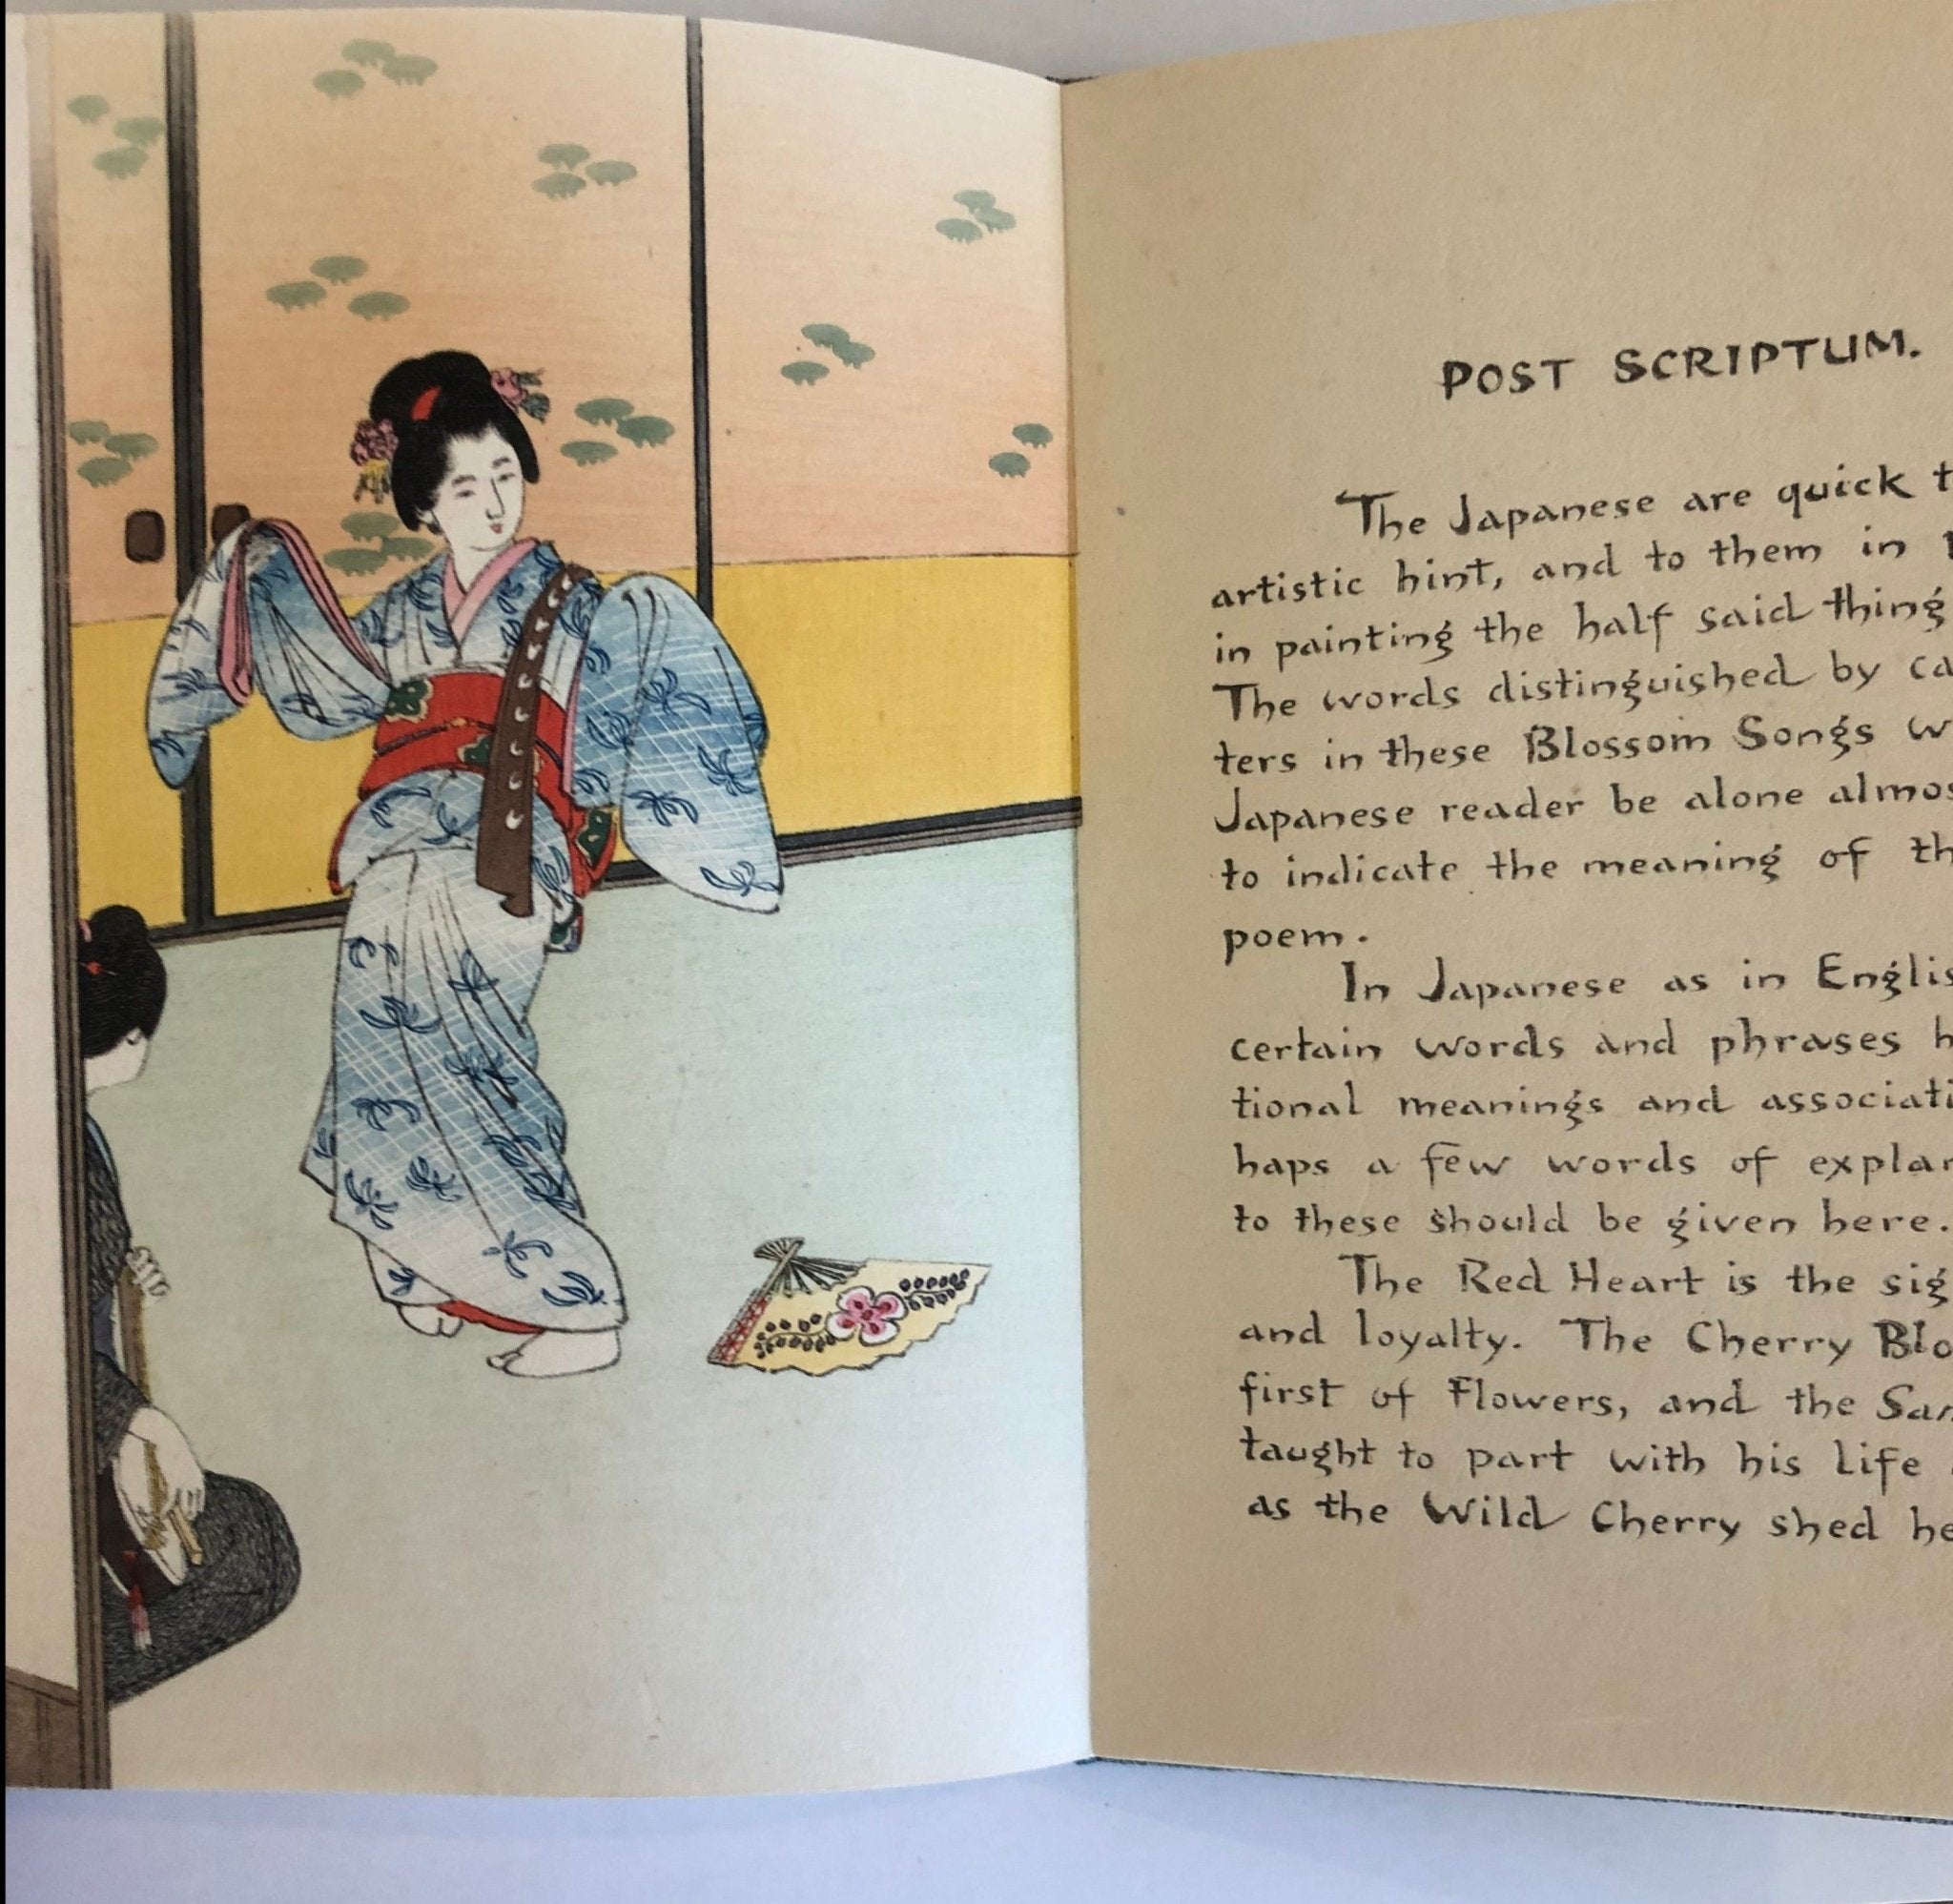 POST SCRIPTUM.
The Japanese are quick
artistic hint, and to them in
in painting the half said thing
The words distinguished by
ters in these Blossom Songs
Japanese reader be alone
to indicate the meaning of
poem.
In Japanese as in
certain words and phrases
tional meanings and
haps a few words of
to these should be given here.
The Red Heart is the
and loyalty. The Cherry
first of Flowers, and the
taught to part with his Life
as the Wild Cherry shed